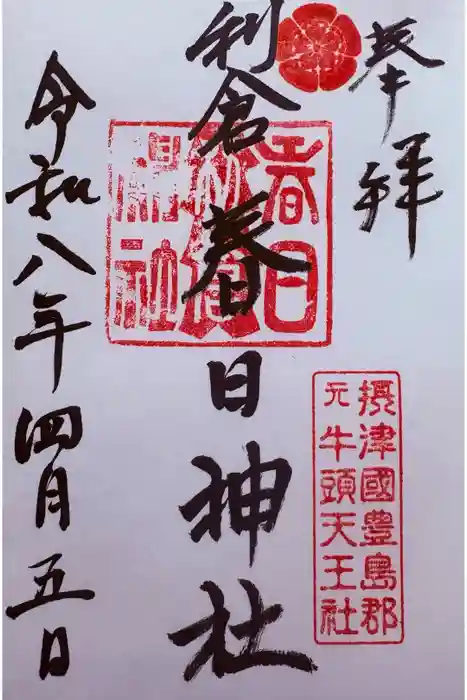 奉拝
利倉春日神社
春日
神社
摂津國豊島郡
元牛頭天王社
令和八年四月五日